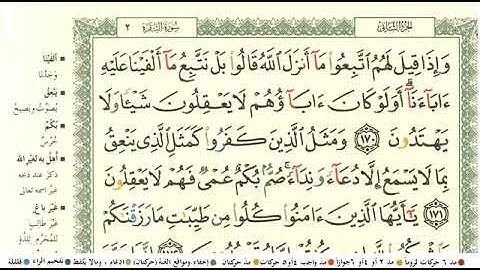 الجزء الثاني
سورة البقرة ٢
وَإِذَا قِيلَ لَهُمُ ٱتَّبِعُوا۟ مَآ أَنزَلَ ٱللَّهُ قَالُوا۟ بَلْ نَتَّبِعُ مَآ أَلْفَيْنَا عَلَيْهِ
ءَابَآءَنَآ ۗ أَوَلَوْ كَانَ ءَابَآؤُهُمْ لَا يَعْقِلُونَ شَيْـًٔا وَلَا
يَهْتَدُونَ ١٧٠ وَمَثَلُ ٱلَّذِينَ كَفَرُوا۟ كَمَثَلِ ٱلَّذِى يَنْعِقُ
بِمَا لَا يَسْمَعُ إِلَّا دُعَآءً وَنِدَآءً ۚ صُمٌّۢ بُكْمٌ عُمْىٌ فَهُمْ لَا يَعْقِلُونَ
١٧١ يَـٰٓأَيُّهَا ٱلَّذِينَ ءَامَنُوا۟ كُلُوا۟ مِن طَيِّبَـٰتِ مَا رَزَقْنَـٰكُمْ
ألفينا
وجدنا
ينعق
يصوّت ويصيح
بكم
خرس
أهل به لغير الله
ذكر عند ذبحه
غير اسمه تعالى
غير باغ
مد ٦ حركات لزوما مد ٢ أو ٤ أو ٦ جوازا مد واجب ٤ أو ٥ حركات مد حركتان إخفاء، ومواقع الغنة (حركتان) ادغام، وما لا يلفظ تفخيم الراء قلقلة